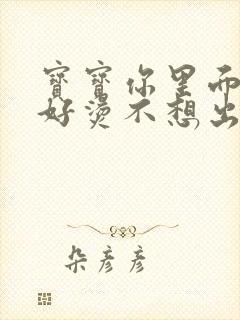 寶寶你里面
好燙不想出
朵彥彥